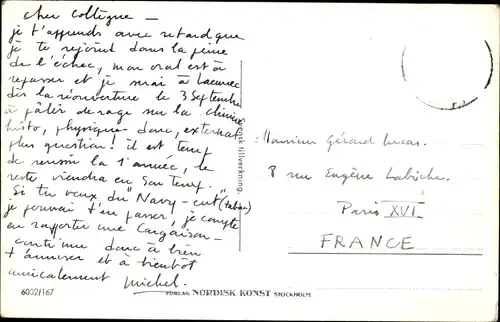 cher collègue —
je t'apprends avec retard que
je te rejoint dans la peine
de l'échec, mon oral est à
repasser et je serai à Laennec
dès la réouverture le 3 Septembre
à pâtir de rage sur la chimie
histo, physique — donc, externat
plus question ! il est temps
de réussir la 1° année, le
reste viendra en son temps.
Si tu veux, du "Navy-cut" (tabac)
je pourrai t'en passer, je compte
en rapporter une cargaison —
continue donc à bien
t'amuser et à bientôt
amicalement Michel.
Monsieur Gérard Lucas.
8 rue Eugène Labiche.
Paris XVI
FRANCE
Svensk tillverkning.
6002/167 FÖRLAG NORDISK KONST STOCKHOLM